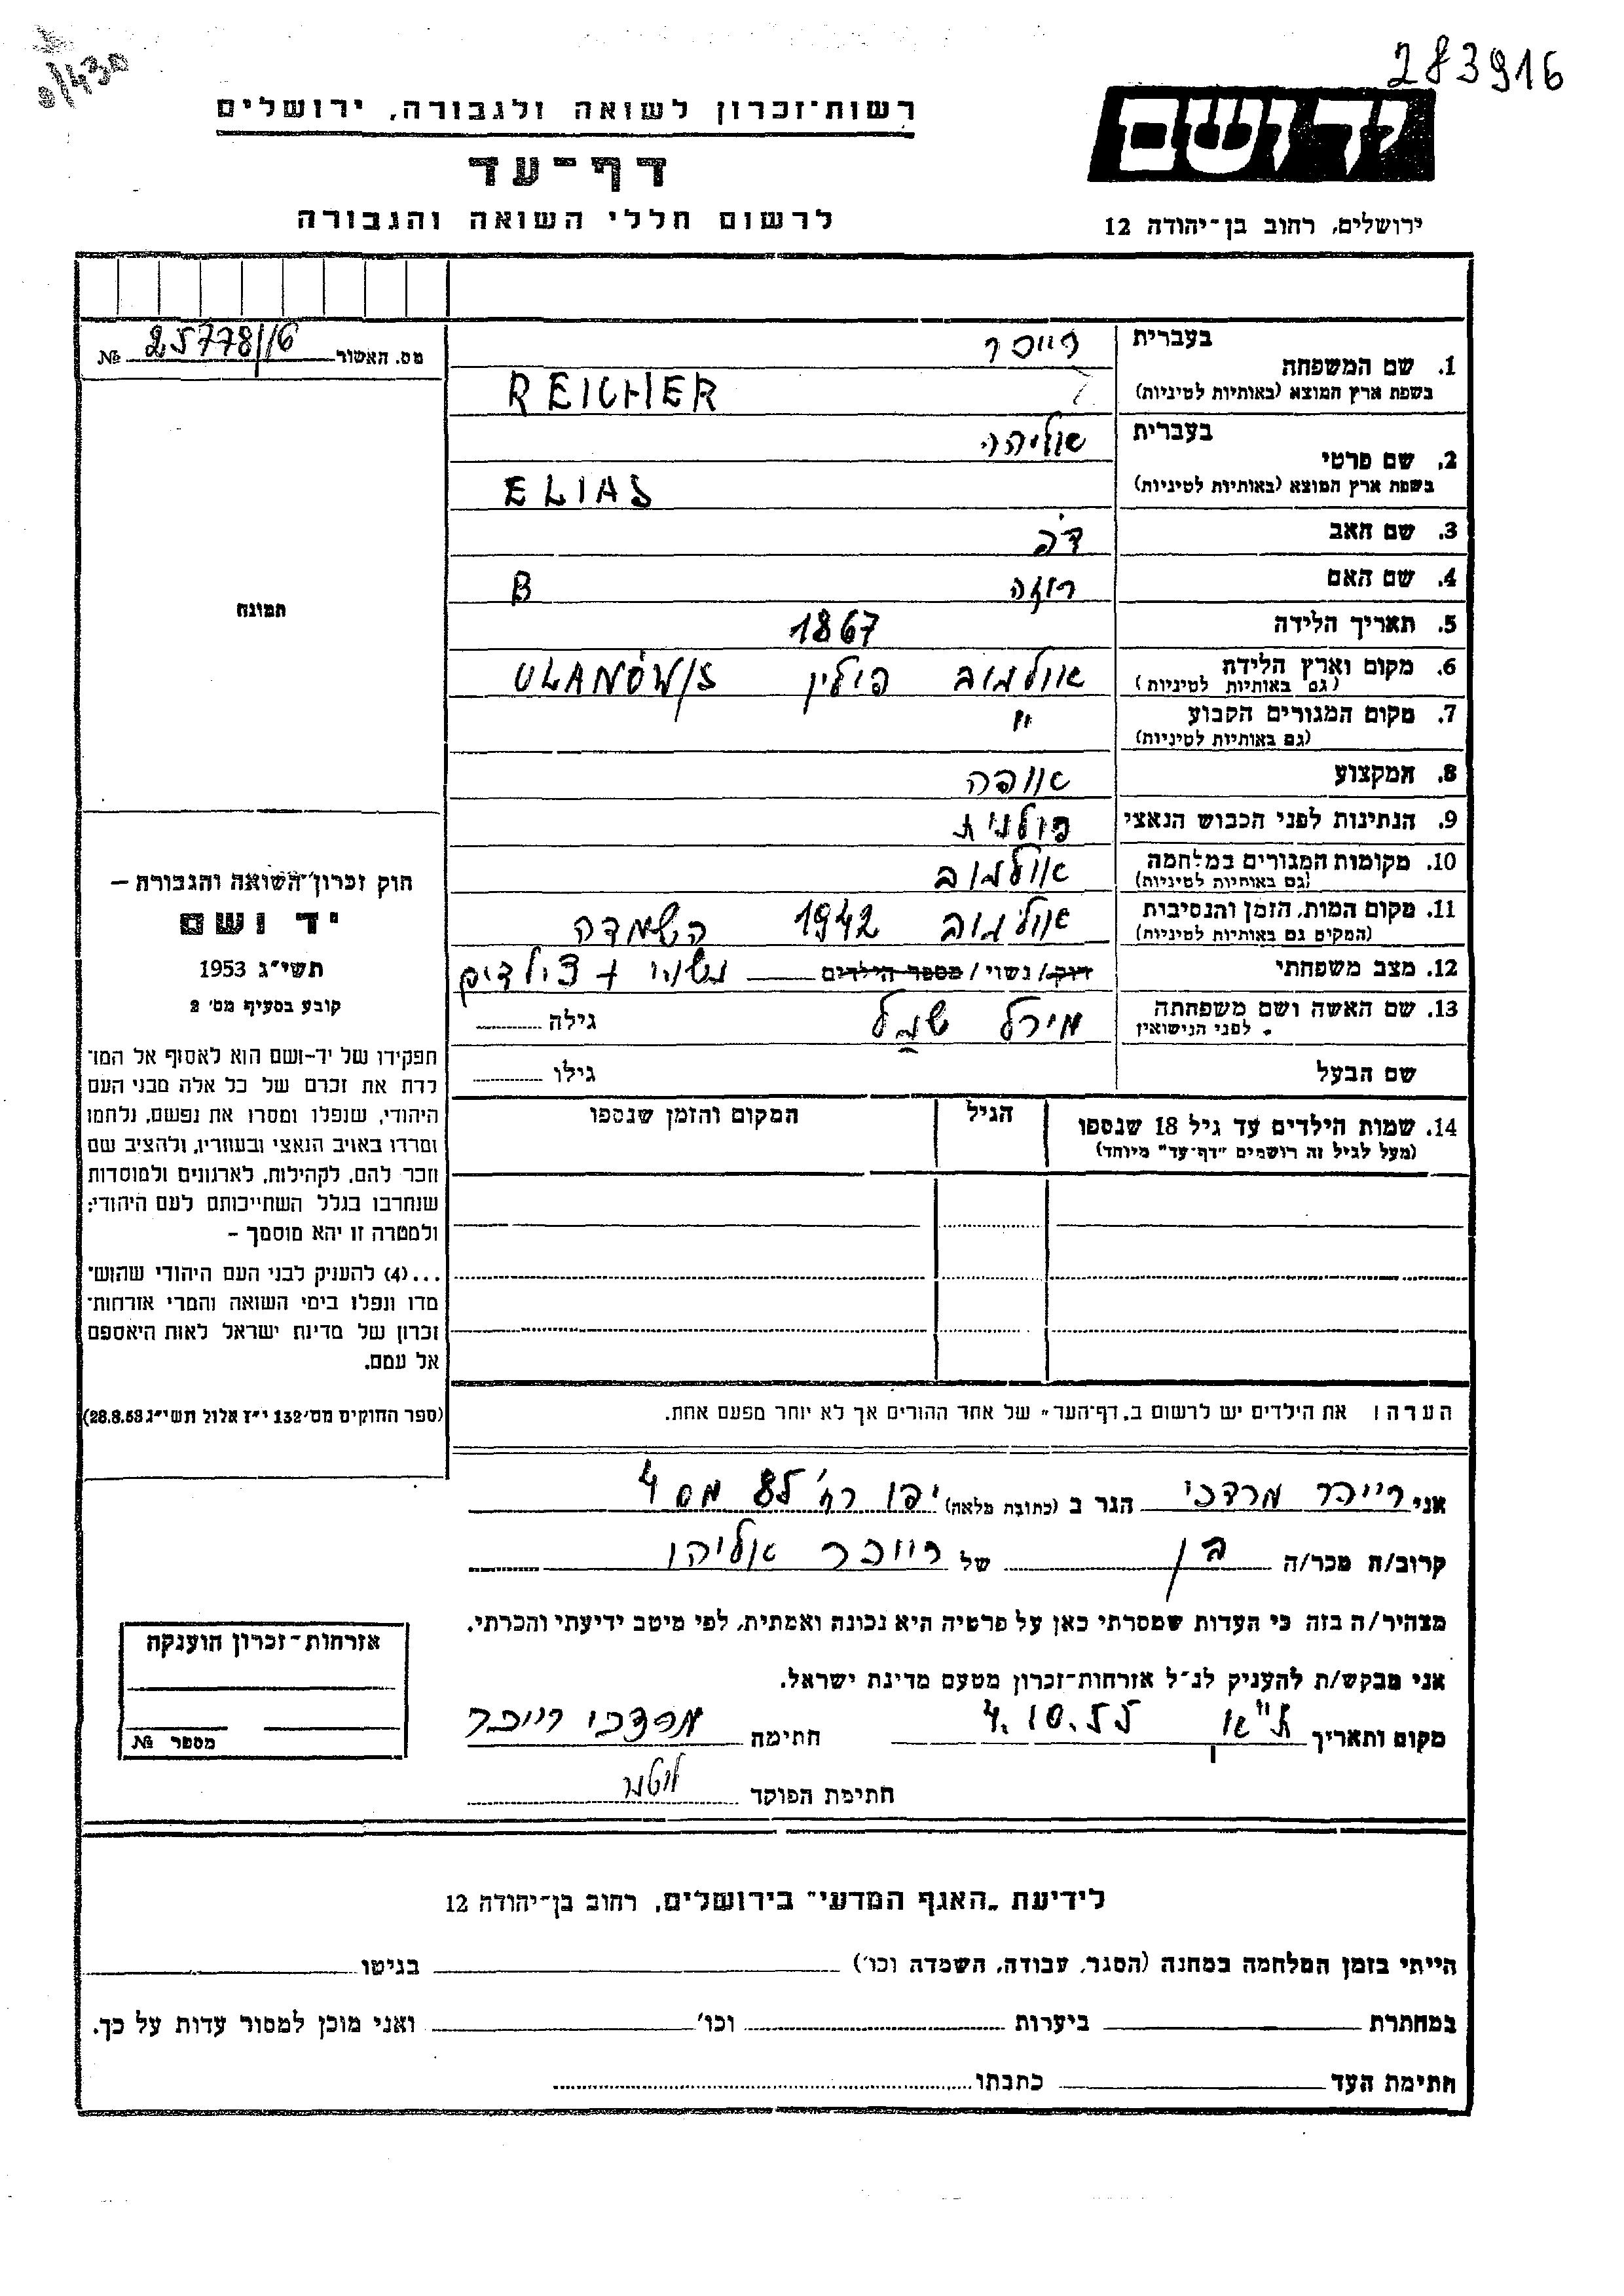 283916
9/430
יד ושם
ירושלים, רחוב בן־יהודה 12
רשות־זכרון לשואה ולגבורה, ירושלים
דף־עד
לרשום חללי השואה והגבורה
מס. האשור 25778/16 №
1. שם המשפחה בעברית רייכר
בשפת ארץ המוצא (באותיות לטיניות) REICHER
2. שם פרטי בעברית אליהו
בשפת ארץ המוצא (באותיות לטיניות) ELIAS
3. שם האב דב
4. שם האם רוזה B
5. תאריך הלידה 1867
6. מקום וארץ הלידה אולנוב פולין ULANÓW/S
(גם באותיות לטיניות)
7. מקום המגורים הקבוע "
(גם באותיות לטיניות)
8. המקצוע אופה
9. הנתינות לפני הכבוש הנאצי פולנית
10. מקומות המגורים במלחמה אולנוב
(גם באותיות לטיניות)
11. מקום המות, הזמן והנסיבות אולנוב 1942 השמדה
(המקום גם באותיות לטיניות)
12. מצב משפחתי רוק/ נשוי / מספר הילדים נשוי + 3 ילדים
13. שם האשה ושם משפחתה מירל גילה
לפני הנישואין
שם הבעל גילו
14. שמות הילדים עד גיל 18 שנספו הגיל המקום והזמן שנספו
(מעל לגיל זה רושמים "דף־עד" מיוחד)
תמונה
חוק זכרון־השואה והגבורה –
יד ושם
תשי"ג 1953
קובע בסעיף מס' 2
תפקידו של יד-ושם הוא לאסוף אל המו־
לדת את זכרם של כל אלה מבני העם
היהודי, שנפלו ומסרו את נפשם, נלחמו
ומרדו באויב הנאצי ובעוזריו, ולהציב שם
וזכר להם, לקהילות, לארגונים ולמוסדות
שנחרבו בגלל השתייכותם לעם היהודי;
ולמטרה זו יהא מוסמך –
...(4) להעניק לבני העם היהודי שהוש־
מדו ונפלו בימי השואה והמרי אזרחות־
זכרון של מדינת ישראל לאות היאספם
אל עמם.
(ספר החוקים מס׳ 132 י״ז אלול תשי״ג 28.8.53)
הערה: את הילדים יש לרשום ב„דף־העד" של אחד ההורים אך לא יותר מפעם אחת.
אני רייכר מרדכי הגר ב (כתובת מלאה) יפו רח' 84 מס 4
קרוב/ה מכר/ה בן של רייכר אליהו
מצהיר/ה בזה כי העדות שמסרתי כאן על פרטיה היא נכונה ואמתית, לפי מיטב ידיעתי והכרתי.
אני מבקש/ת להעניק לנ״ל אזרחות־זכרון מטעם מדינת ישראל.
מקום ותאריך ת"א 4.10.55 חתימה מרדכי רייכר
חתימת הפוקד
אזרחות־זכרון הוענקה
מספר №
לידיעת „האגף המדעי" בירושלים, רחוב בן־יהודה 12
הייתי בזמן המלחמה במחנה (הסגר, עבודה, השמדה וכו׳) בגיטו
במחתרת ביערות וכו׳ ואני מוכן למסור עדות על כך.
חתימת העד כתבתו